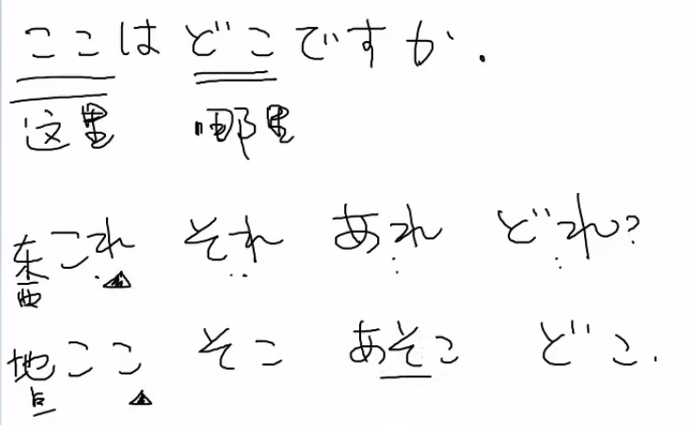 ここは どこですか.
这里 哪里
东西 これ それ あれ どれ?
地点 ここ そこ あそこ どこ.